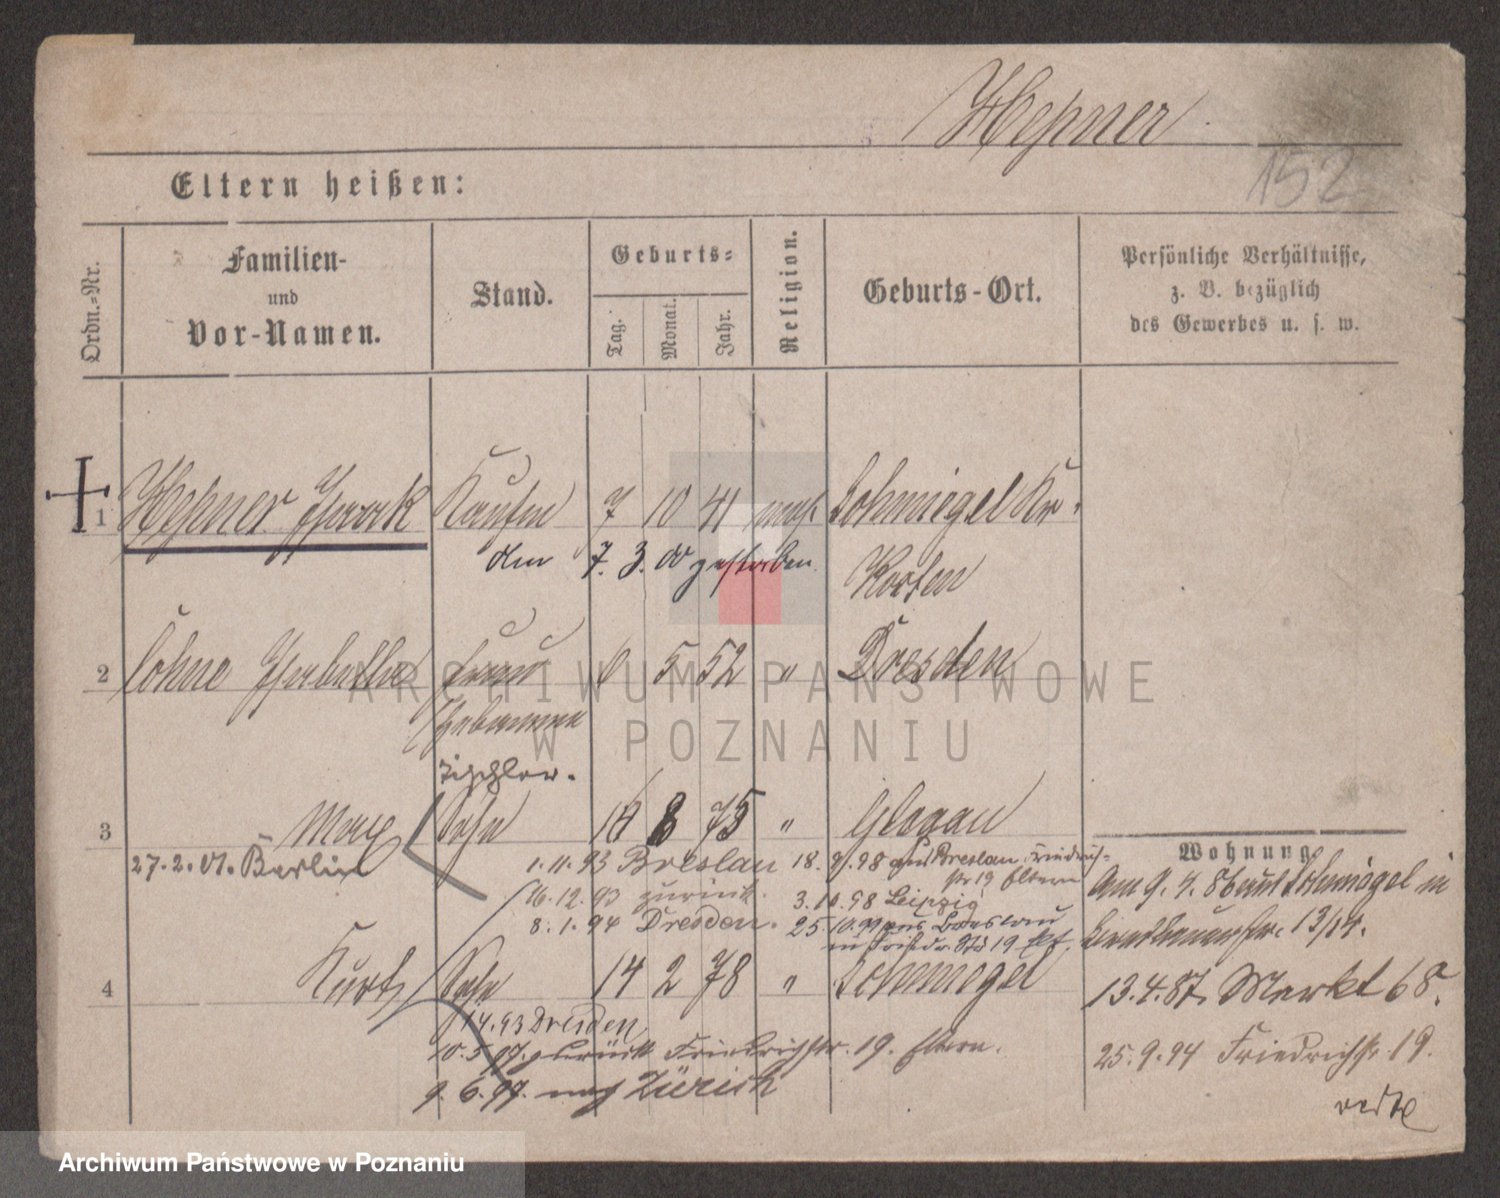 Hepner
152
Eltern heißen:
Ordn.-Nr.
Familien-
und
Vor-Namen.
Stand.
Geburts-
Tag.
Monat.
Jahr.
Religion.
Geburts-Ort.
Persönliche Verhältnisse,
z. B. bezüglich
des Gewerbes u. s. w.
1 Hepner Isaak Kaufm 7 10 41 mos. Schmiegel Kr.
den 7. 3. 00 gestorben.
Kosten
2 Cohne Frau 6 5 52 " Dresden
3 Max Sohn 18 8 75 " Glogau
Wohnung
27.2.01. Berlin 1.11.93 Breslau 18. 9.98 aus Breslau Friedrich-
str 19 Eltern
16.12.93 zurück. 3.10.98 Leipzig
8.1.94 Dresden. 25.10.99 aus Breslau
in Friedr. Str 19
Am 9. 4. 86 aus Schmiegel in
13/14.
4 Kurt Sohn 14 2 78 " Schmiegel
13.4.87. Markt 68.
14.93 Dresden
10.5.97. zurück Friedrichstr. 19. Eltern.
25.9.94 Friedrichstr. 19.
9.6.97. nach Zürich
ARCHIWUM PAŃSTWOWE
W POZNANIU
Archiwum Państwowe w Poznaniu